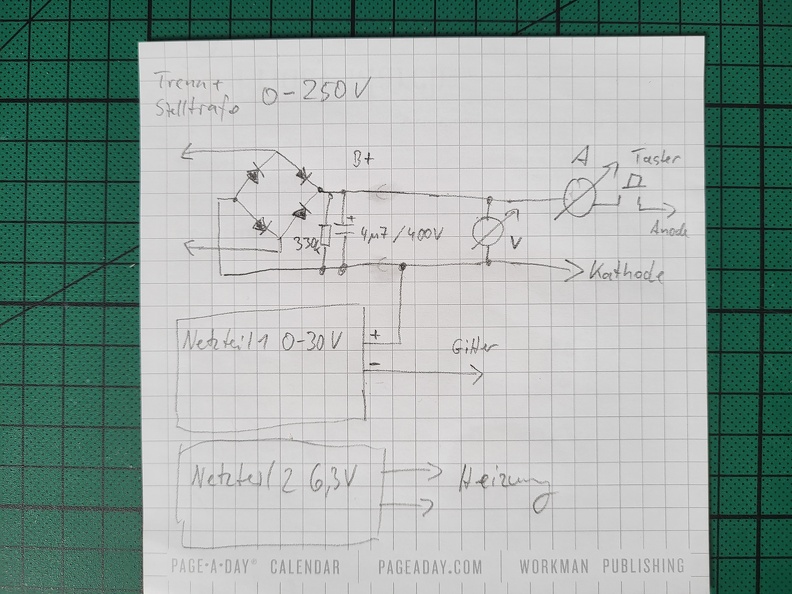 Trenn +
Stelltrafo 0-250V
B+
A
Taster
330k
4µ7/400V
V
Anode
Kathode
Netzteil 1 0-30V
+
-
Gitter
Netzteil 2 6,3V
Heizung
PAGE•A•DAY® CALENDAR | PAGEADAY.COM | WORKMAN PUBLISHING